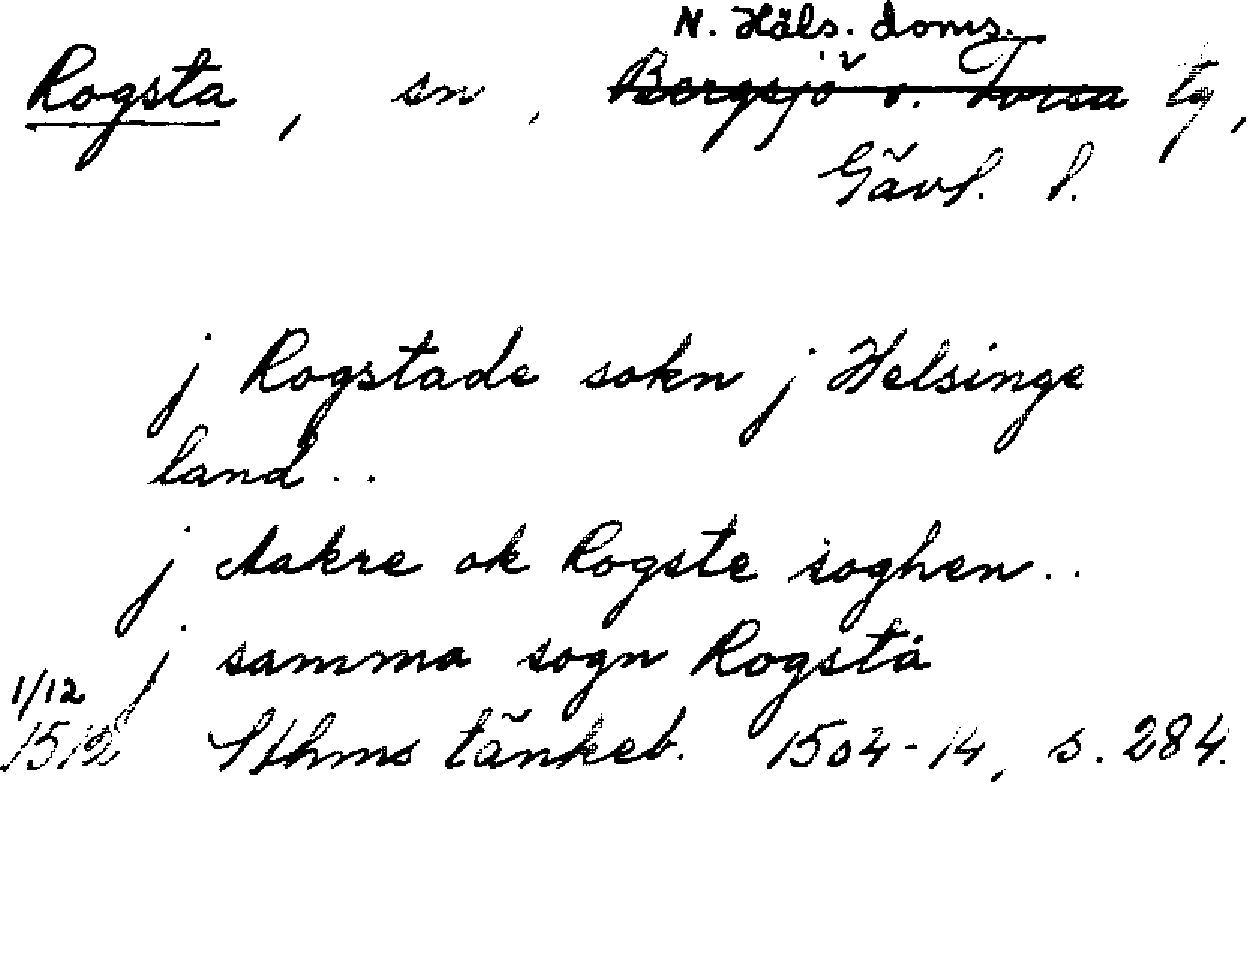 N. Häls. doms.
Rogsta, sn, Bergsjö o. Forsa tg,
Gävl. l.
j Rogstade sokn j Helsinge
land..
j Aakre ok Rogste soghen..
j samma sogn Rogsta
1/12
1512 Sthms tänkeb. 1504-14, s. 284.